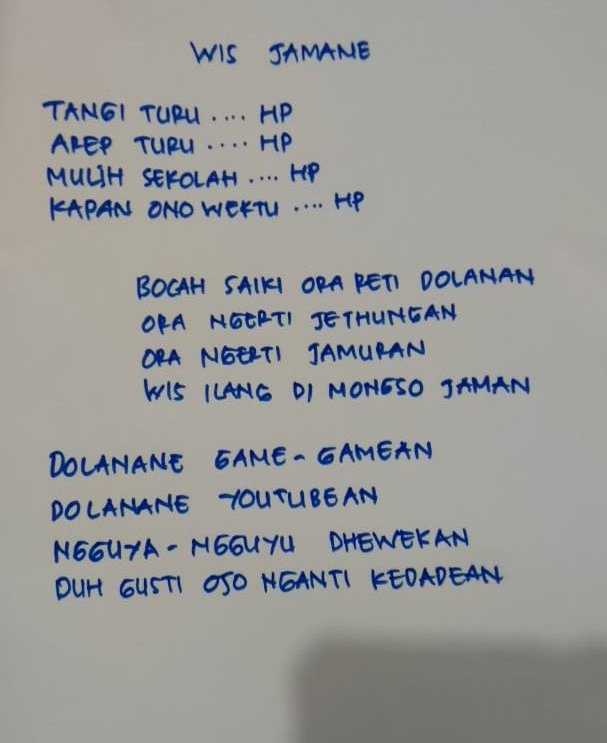 WIS JAMANE
TANGI TURU .... HP
AREP TURU .... HP
MULIH SEKOLAH .... HP
KAPAN ONO WEKTU .... HP
BOCAH SAIKI ORA RETI DOLANAN
ORA NGERTI JETHUNGAN
ORA NGERTI JAMURAN
WIS ILANG DI MONGSO JAMAN
DOLANANE GAME - GAMEAN
DOLANANE YOUTUBEAN
NGGUYA - NGGUYU DHEWEKAN
DUH GUSTI OJO NGANTI KEDADEAN